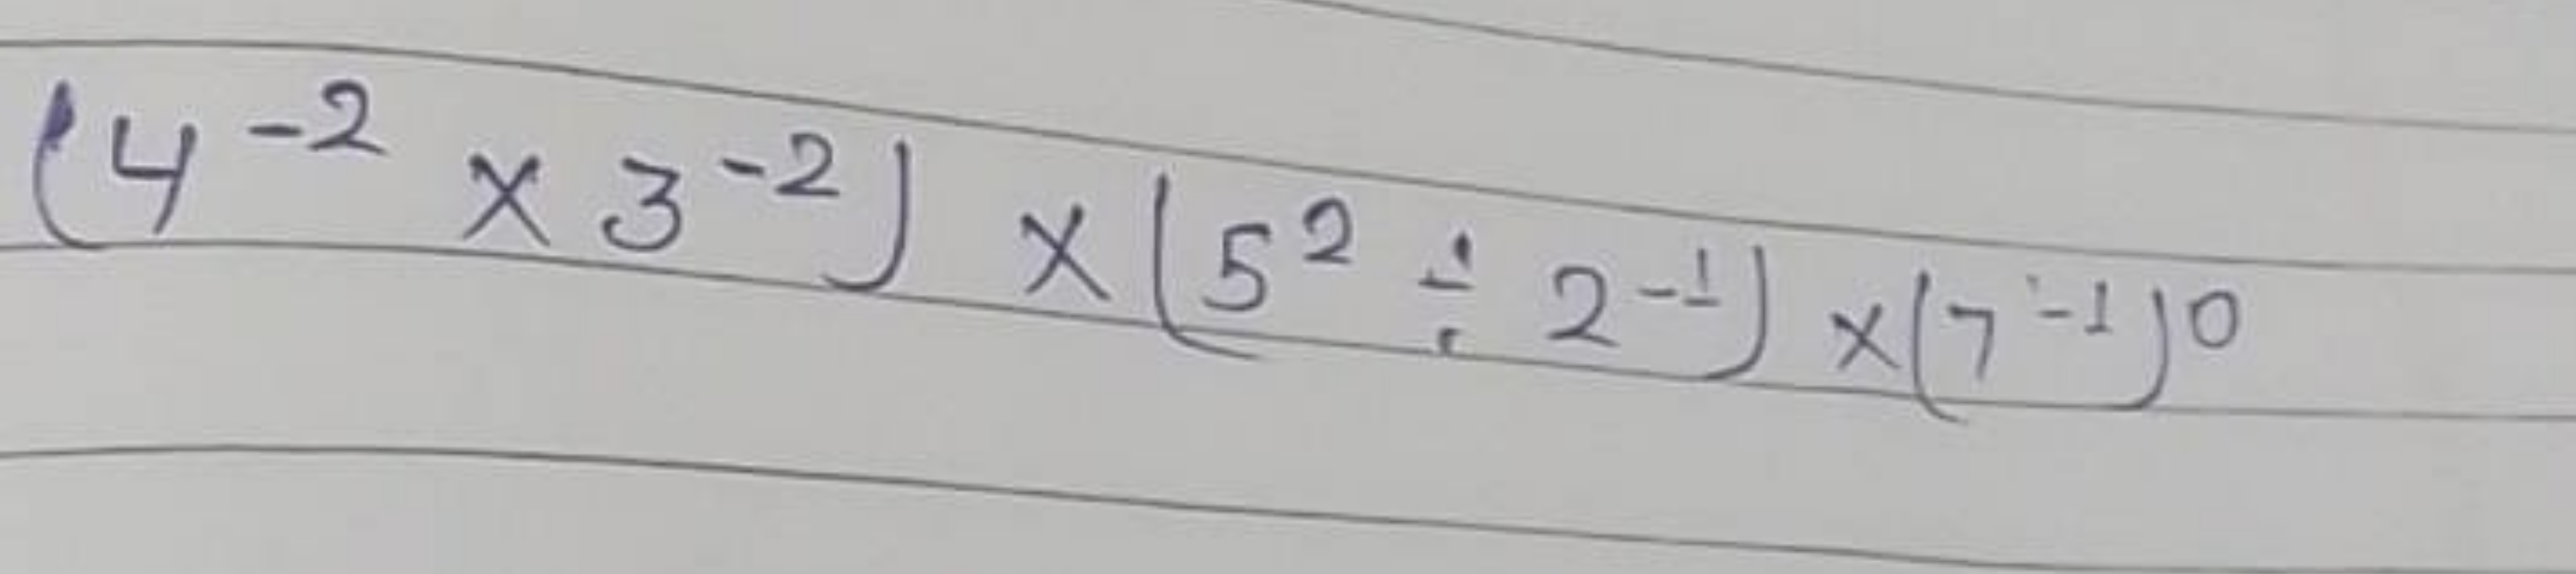 (4⁻² × 3⁻²) × (5² ÷ 2⁻¹) × (7⁻¹)⁰